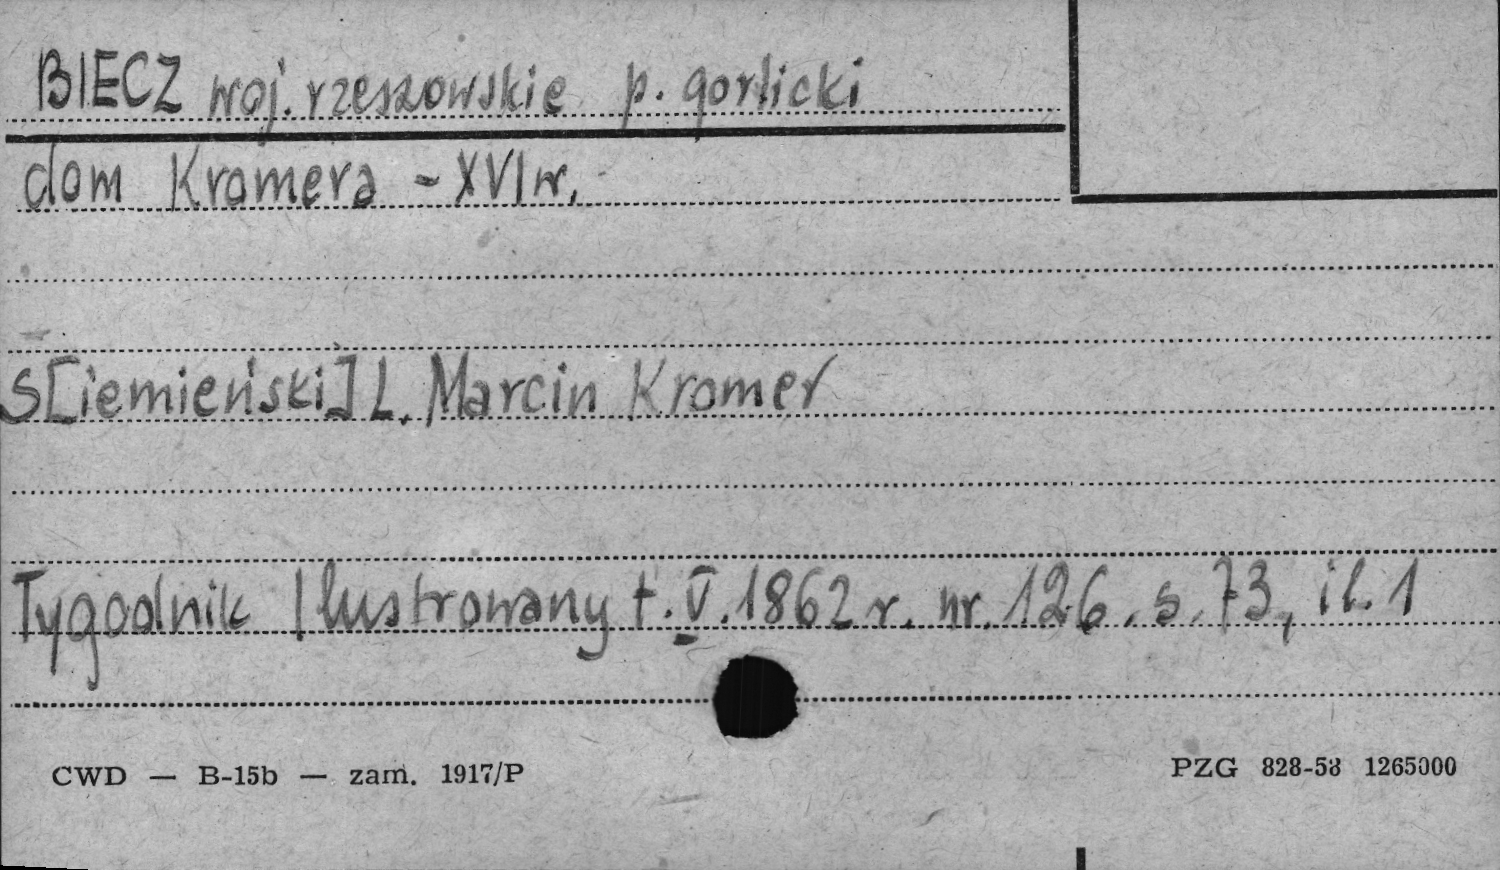 BIECZ woj. rzeszowskie p. gorlicki
dom Kromera - XVI w.
S[iemieński] L. Marcin Kromer
Tygodnik Ilustrowany t. V. 1862 r. nr. 126. s. 73, il. 1
CWD — B-15b — zam. 1917/P
PZG 828-53 1265000